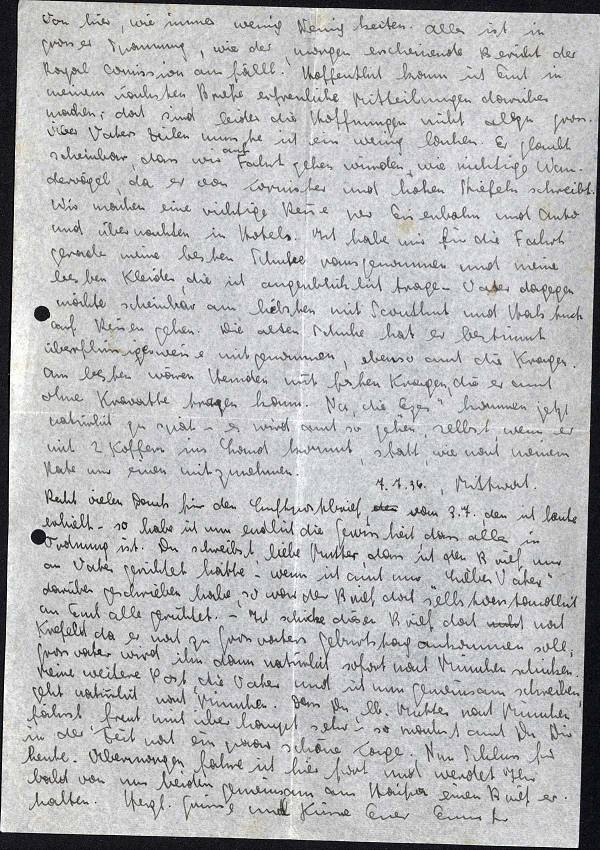 Von hier, wie immer wenig Neuigkeiten. Alles ist in
grosser Spannung, wie der morgen erscheinende Bericht der
Royal Comission ausfällt. Hoffentlich kann ich Euch in
meinem nächsten Briefe erfreuliche Mitteilungen darüber
machen; doch sind leider die Hoffnungen nicht allzu gross.
Über Vaters Zeilen musste ich ein wenig lachen. Er glaubt
scheinbar, dass wir auf Fahrt gehen würden, wie richtige Wan-
dervögel, da er von Tornister und hohen Stiefeln schreibt.
Wir machen eine richtige Reise per Eisenbahn und Auto
und übernachten in Hotels. Ich habe mir für die Fahrt
gerade meine besten Schuhe rausgenommen und meine
besten Kleider die ich augenblicklich trage. Vater dagegen
möchte scheinbar am liebsten mit Scouthut und Halstuch
auf Reisen gehen. Die alten Schuhe hat er bestimmt
überflüssigerweise mitgenommen, ebenso auch die Kragen.
Am besten wären Hemden mit festen Kragen, die er auch
ohne Kravatte tragen kann. Na, die kommen jetzt
natürlich zu spät - es wird auch so gehen, selbst wenn er
mit 2 Koffern ins Land kommt, statt, wie nach meinem
Rate nur einen mitzunehmen.
7.7.36, Mittwoch.
Recht vielen Dank für den Luftpostbrief vom 3.7. den ich heute
erhielt - so habe ich nun endlich die Gewissheit dass alles in
Ordnung ist. Du schreibst, liebe Mutter, dass ich den Brief nur
an Vater gerichtet hatte - wenn ich auch nur "Lieber Vater"
darüber geschrieben habe, so war der Brief doch selbstverständlich
an Euch alle gerichtet. - Ich schicke diesen Brief doch nach
Krefeld da er noch zu Grossvaters Geburtstag ankommen soll;
Grossvater wird ihn dann natürlich sofort nach München schicken.
Meine weitere Post, die Vater und ich nun gemeinsam schreiben,
geht natürlich nach München. Dass Du, lb. Mutter nach München
fährst, freut mich überhaupt sehr; so machst auch Du Dir
in der Zeit noch ein paar schöne Tage. Nun Schluss für
heute. Übermorgen fahre ich hier fort und werdet Ihr
bald von uns beiden gemeinsam aus Haifa einen Brief er-
halten. Herzl. Grüsse und Küsse Euer